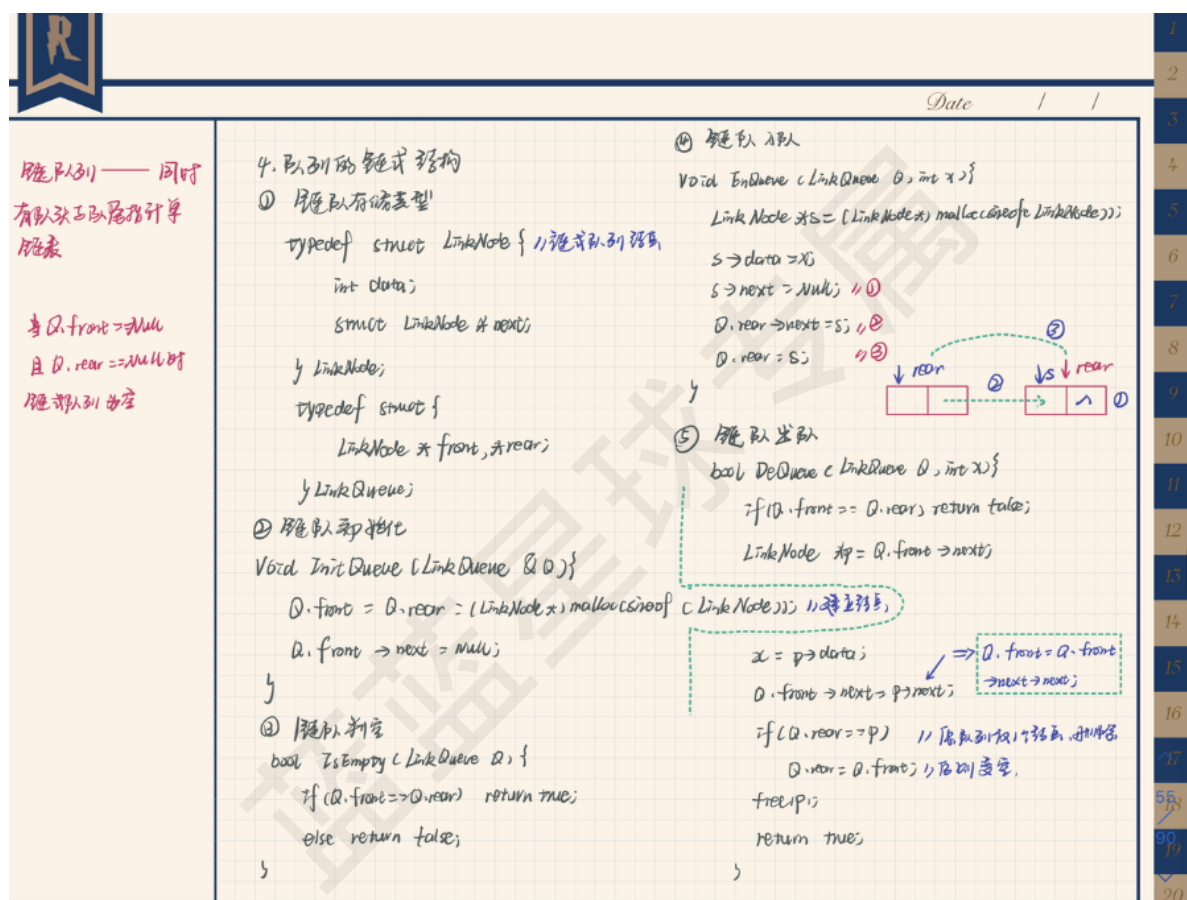 R
Date / /
链队列 —— 同时
有队头与队尾指针单
链表
当 Q.front == Null
且 Q.rear == Null 时
链式队列为空
4. 队列的链式结构
① 链队存储类型
typedef struct LinkNode { //链式队列结点
int data;
struct LinkNode *next;
} LinkNode;
typedef struct {
LinkNode *front, *rear;
} LinkQueue;
② 链队初始化
Void InitQueue (LinkQueue &Q){
Q.front = Q.rear = (LinkNode*) malloc(sizeof (LinkNode)); //建立结点
Q.front → next = Null;
}
③ 链队判空
bool IsEmpty (LinkQueue Q) {
if (Q.front == Q.rear) return true;
else return false;
}
④ 链队入队
Void EnQueue (LinkQueue Q, int x){
LinkNode *s = (LinkNode*) malloc(sizeof(LinkNode));
s→data = x;
s→next = Null; //①
Q.rear→next = s; //②
Q.rear = s; //③
}
③
↓ rear ② ↓s ↓ rear
^ ①
⑤ 链队出队
bool DeQueue (LinkQueue Q, int x){
if (Q.front == Q.rear) return false;
LinkNode *p = Q.front →next;
x = p→data;
Q.front →next = p→next;
⇒ Q.front = Q.front
→next→next;
if (Q.rear == p) //原队列仅1个结点,删除
Q.rear = Q.front; //后则变空.
free(p);
return true;
}
蓝蓝星球专属
1
2
3
4
5
6
7
8
9
10
11
12
13
14
15
16
17
18
19
20
55
90